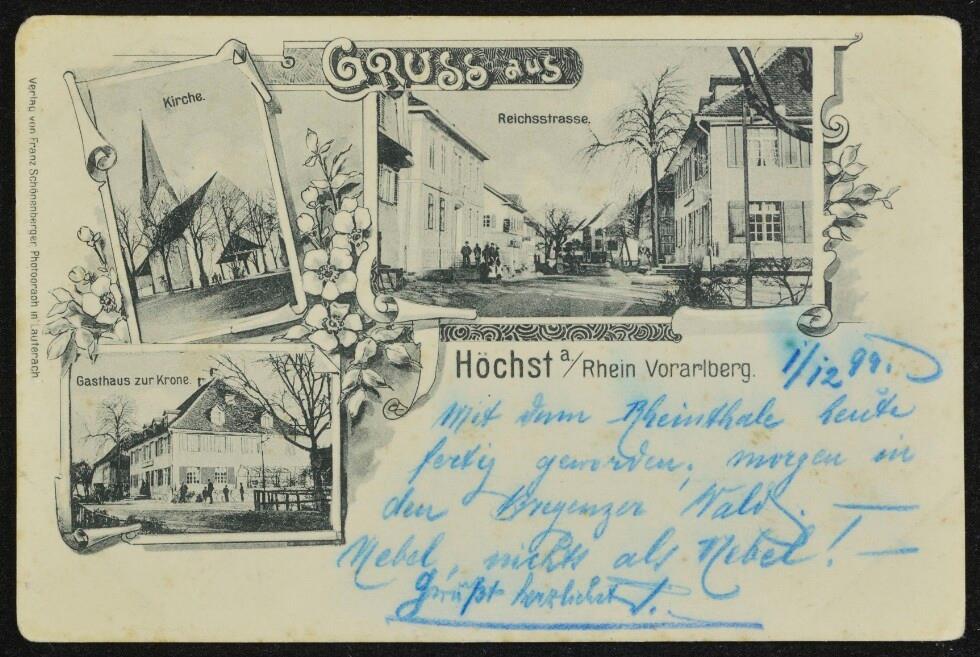 Verlag von Franz Schönenberger Photograph in Lauterach
Kirche.
GRUSS aus
Reichsstrasse.
Gasthaus zur Krone.
Höchst a/Rhein Vorarlberg.
1/12 99.
Mit dem Rheinthale heute
fertig geworden, morgen in
den Bregenzer Wald. —
Nebel, nichts als Nebel! —
Grüßt herzlichst